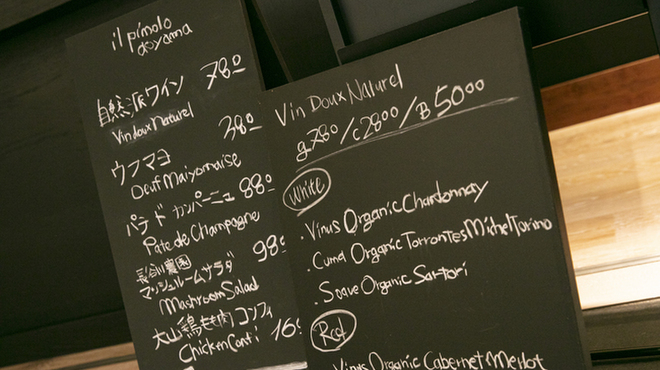 il pimolo
doyama
自然派ワイン 780
Vin doux Naturel
ウフマヨ 380
Oeuf Maiyonaise
パテド カンパーニュ 880
Pate de Champagne
長谷川農園
マッシュルームサラダ 980
Mashroom Salad
大山鶏もも肉コンフィ 160
Chicken Conti
Vin Doux Naturel
g 780 / c 2800 / B 5000
White
・Vinus Organic Chardonnay
・Cuma Organic Torrontes Michel Torino
・Soave Organic Sartori
Red
Vinus Organic Cabernet Merlot